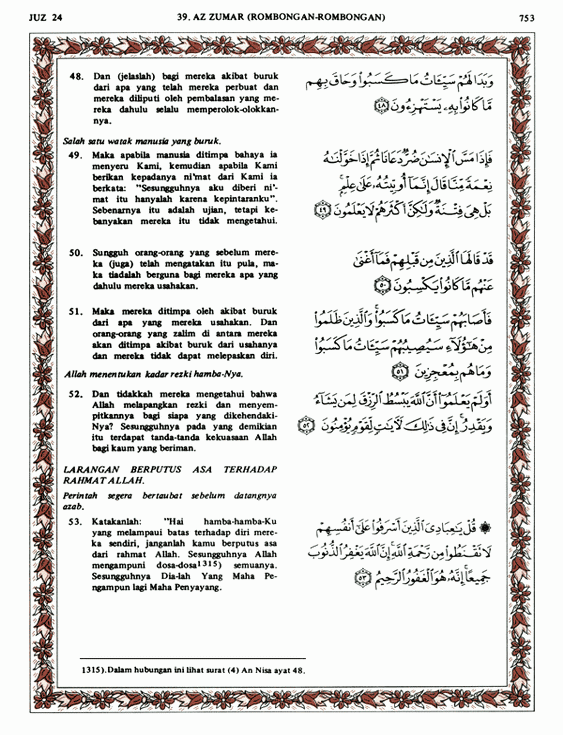 JUZ 24
39. AZ ZUMAR (ROMBONGAN-ROMBONGAN)
753
48. Dan (jelaslah) bagi mereka akibat buruk
dari apa yang telah mereka perbuat dan
mereka diliputi oleh pembalasan yang me-
reka dahulu selalu memperolok-olokkan-
nya.
وَبَدَا لَهُمْ سَيِّئَاتُ مَا كَسَبُوا۟ وَحَاقَ بِهِم
مَّا كَانُوا۟ بِهِۦ يَسْتَهْزِءُونَ ﴿٤٨﴾
Salah satu watak manusia yang buruk.
49. Maka apabila manusia ditimpa bahaya ia
menyeru Kami, kemudian apabila Kami
berikan kepadanya ni'mat dari Kami ia
berkata: "Sesungguhnya aku diberi ni'-
mat itu hanyalah karena kepintaranku".
Sebenarnya itu adalah ujian, tetapi ke-
banyakan mereka itu tidak mengetahui.
فَإِذَا مَسَّ ٱلْإِنسَٰنَ ضُرٌّ دَعَانَا ثُمَّ إِذَا خَوَّلْنَٰهُ
نِعْمَةً مِّنَّا قَالَ إِنَّمَآ أُوتِيتُهُۥ عَلَىٰ عِلْمٍۭ
بَلْ هِىَ فِتْنَةٌ وَلَٰكِنَّ أَكْثَرَهُمْ لَا يَعْلَمُونَ ﴿٤٩﴾
50. Sungguh orang-orang yang sebelum mere-
ka (juga) telah mengatakan itu pula, ma-
ka tiadalah berguna bagi mereka apa yang
dahulu mereka usahakan.
قَدْ قَالَهَا ٱلَّذِينَ مِن قَبْلِهِمْ فَمَآ أَغْنَىٰ
عَنْهُم مَّا كَانُوا۟ يَكْسِبُونَ ﴿٥٠﴾
51. Maka mereka ditimpa oleh akibat buruk
dari apa yang mereka usahakan. Dan
orang-orang yang zalim di antara mereka
akan ditimpa akibat buruk dari usahanya
dan mereka tidak dapat melepaskan diri.
فَأَصَابَهُمْ سَيِّئَاتُ مَا كَسَبُوا۟ وَٱلَّذِينَ ظَلَمُوا۟
مِنْ هَٰٓؤُلَآءِ سَيُصِيبُهُمْ سَيِّئَاتُ مَا كَسَبُوا۟
وَمَا هُم بِمُعْجِزِينَ ﴿٥١﴾
Allah menentukan kadar rezki hamba-Nya.
52. Dan tidakkah mereka mengetahui bahwa
Allah melapangkan rezki dan menyem-
pitkannya bagi siapa yang dikehendaki-
Nya? Sesungguhnya pada yang demikian
itu terdapat tanda-tanda kekuasaan Allah
bagi kaum yang beriman.
أَوَلَمْ يَعْلَمُوٓا۟ أَنَّ ٱللَّهَ يَبْسُطُ ٱلرِّزْقَ لِمَن يَشَآءُ
وَيَقْدِرُ إِنَّ فِى ذَٰلِكَ لَءَايَٰتٍ لِّقَوْمٍ يُؤْمِنُونَ ﴿٥٢﴾
LARANGAN BERPUTUS ASA TERHADAP
RAHMAT ALLAH.
Perintah segera bertaubat sebelum datangnya
azab.
53. Katakanlah: "Hai hamba-hamba-Ku
yang melampaui batas terhadap diri mere-
ka sendiri, janganlah kamu berputus asa
dari rahmat Allah. Sesungguhnya Allah
mengampuni dosa-dosa1315) semuanya.
Sesungguhnya Dia-lah Yang Maha Pe-
ngampun lagi Maha Penyayang.
۞ قُلْ يَٰعِبَادِىَ ٱلَّذِينَ أَسْرَفُوا۟ عَلَىٰٓ أَنفُسِهِمْ
لَا تَقْنَطُوا۟ مِن رَّحْمَةِ ٱللَّهِ إِنَّ ٱللَّهَ يَغْفِرُ ٱلذُّنُوبَ
جَمِيعًا إِنَّهُۥ هُوَ ٱلْغَفُورُ ٱلرَّحِيمُ ﴿٥٣﴾
1315).Dalam hubungan ini lihat surat (4) An Nisa ayat 48.